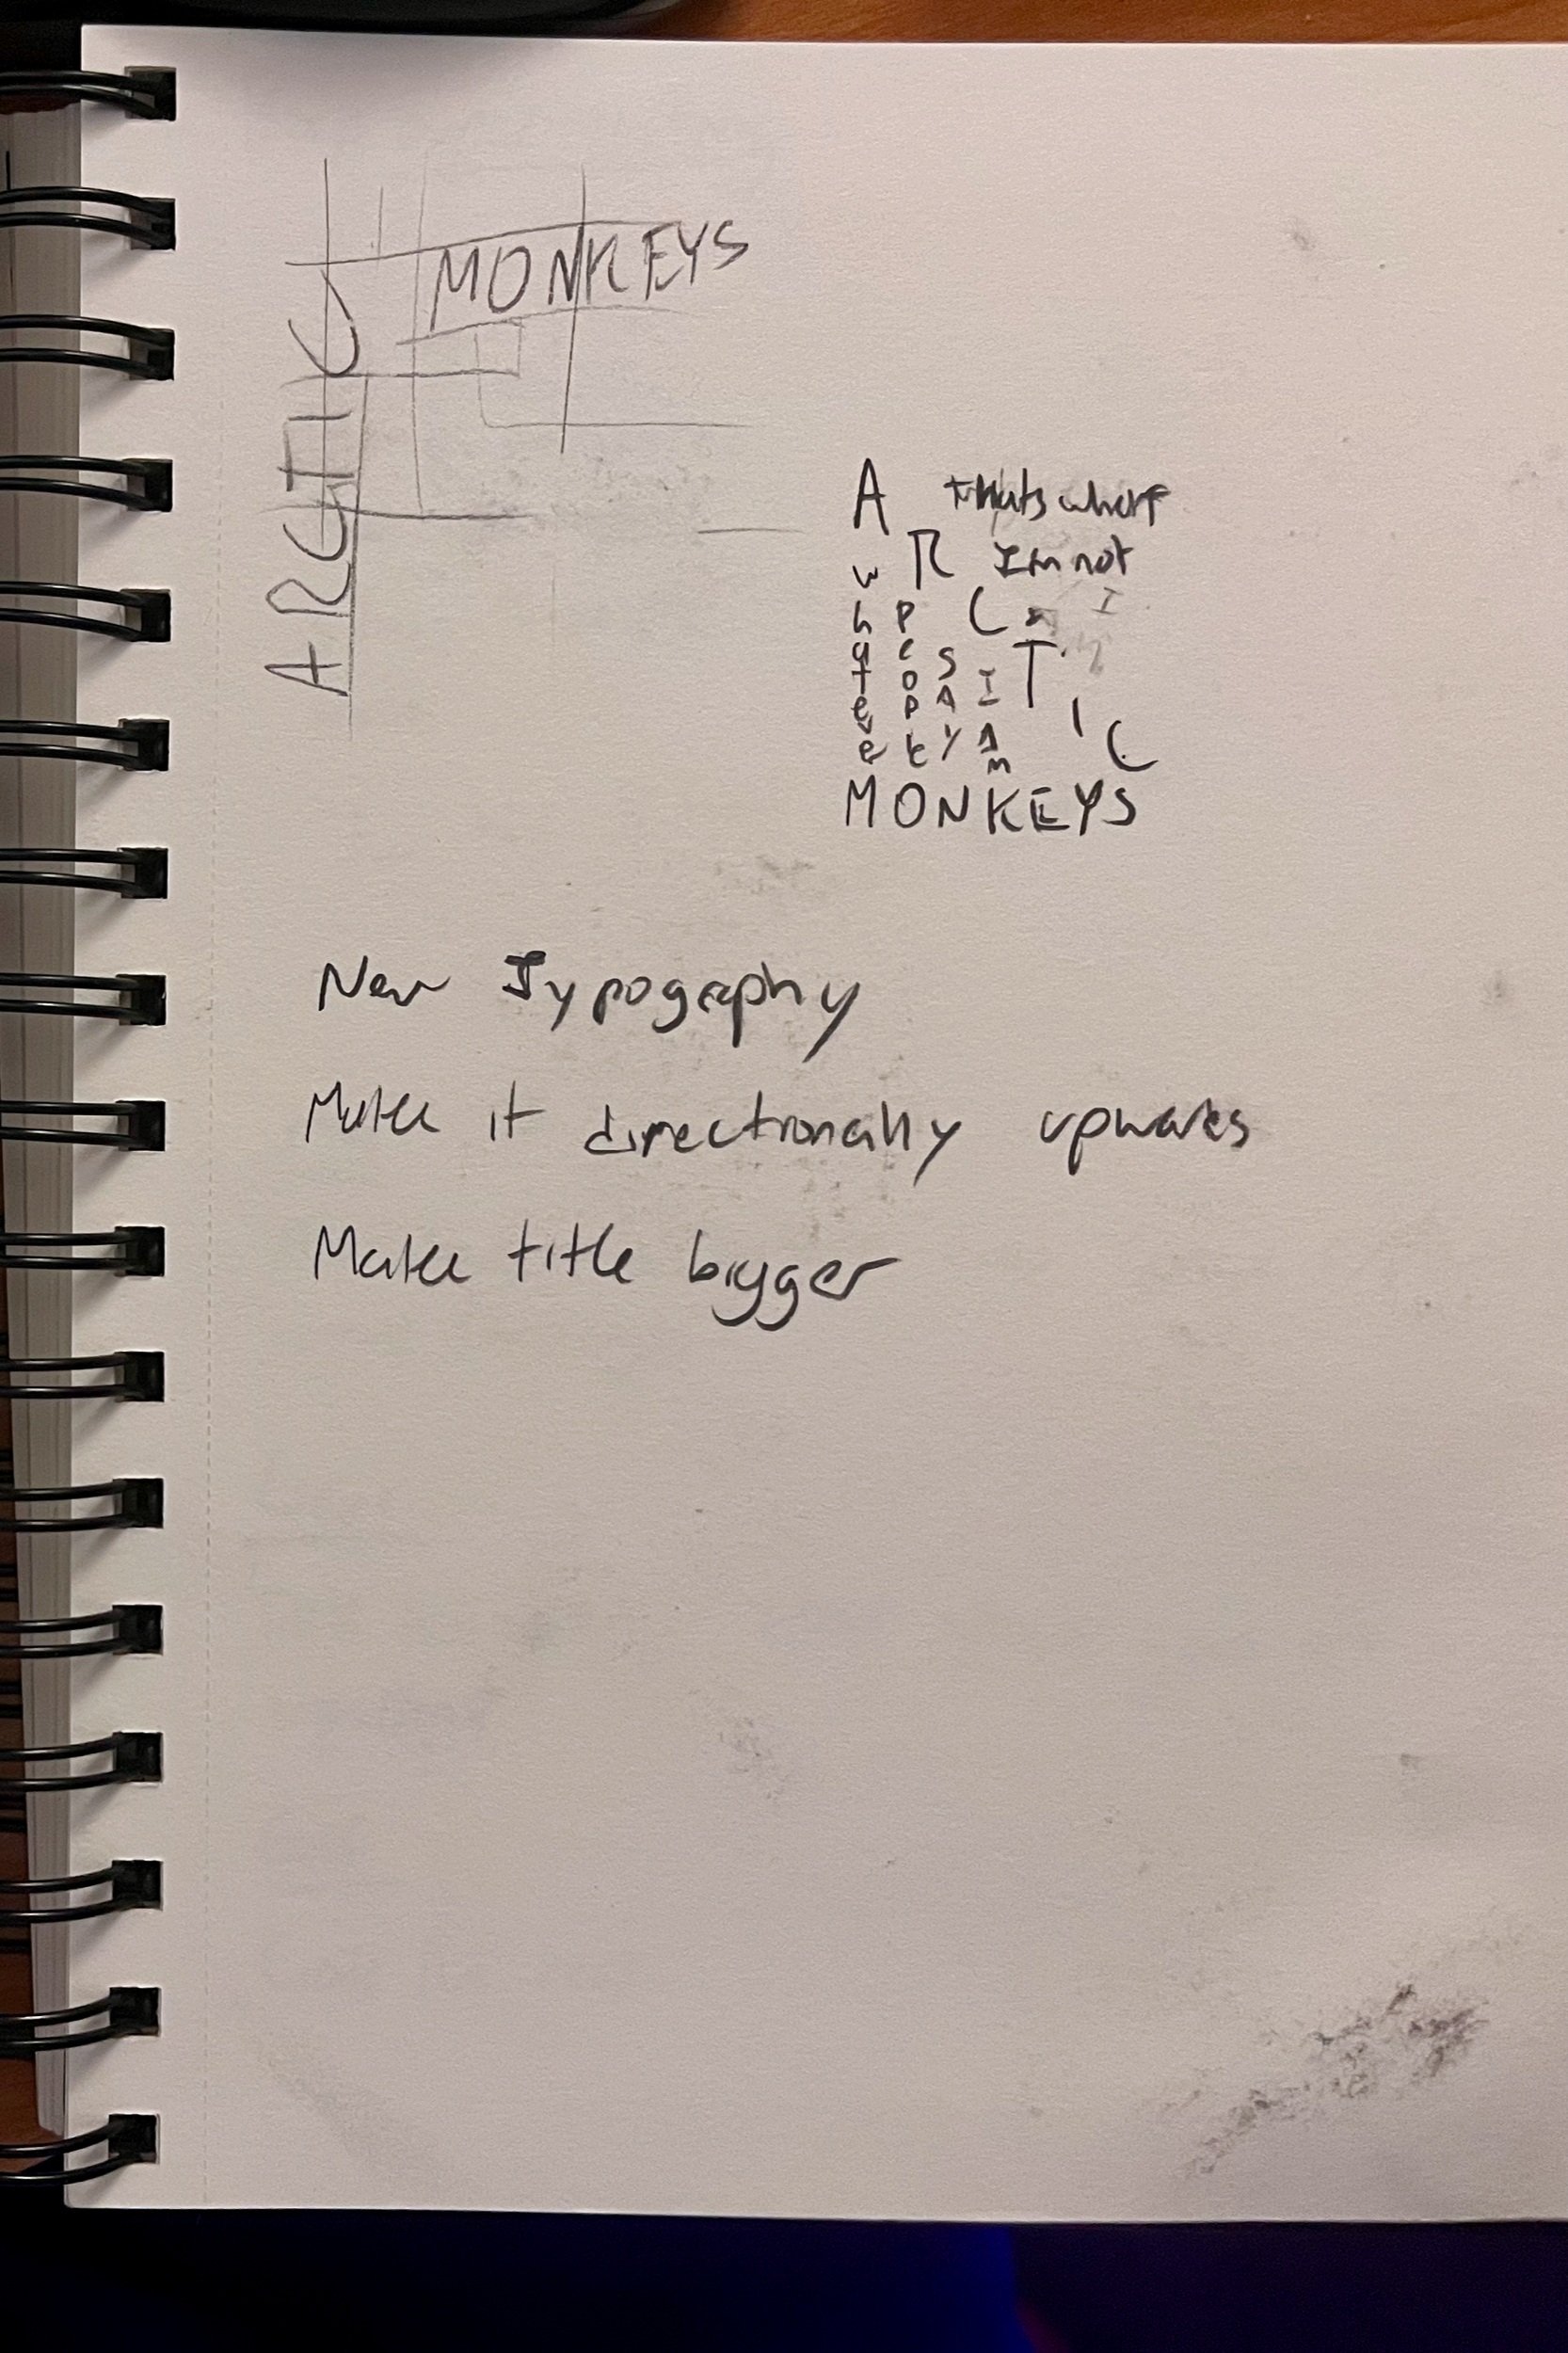 MONKEYS
ARCTIC
A thats where
R Im not
C I
T
I
C
whatever
people
SAY
I AM
MONKEYS
New Typography
Make it directionally upwards
Make title bigger